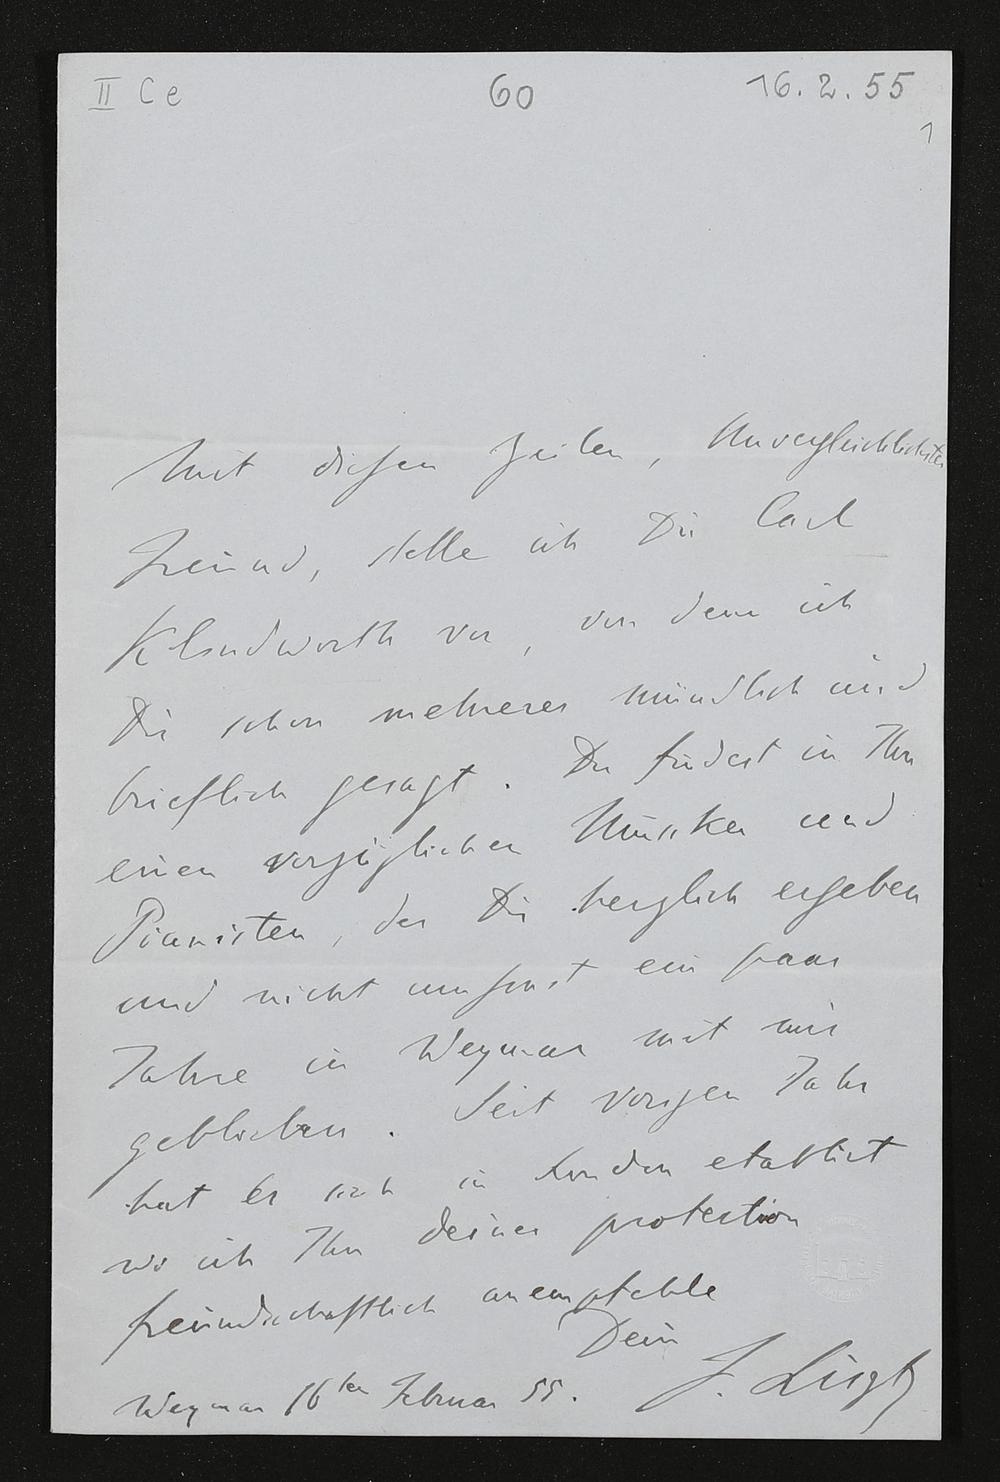 II Ce 60 16.2.55
1
Mit diesen Zeilen, Unvergleichlichster
Freund, stelle ich Dir Carl
Klindworth vor, von dem ich
Dir schon mehreres mündlich und
brieflich gesagt. Du findest in Ihm
einen vorzüglichen Musiker und
Pianisten, der Dir herzlich ergeben
und nicht umsonst ein paar
Jahre in Weymar mit mir
geblieben. Seit vorigen Jahr
hat Er sich in London etablirt
wo ich Ihn deiner protection
freundschaftlich anempfehle
Dein
F. Liszt
Weymar 16ten Februar 55.